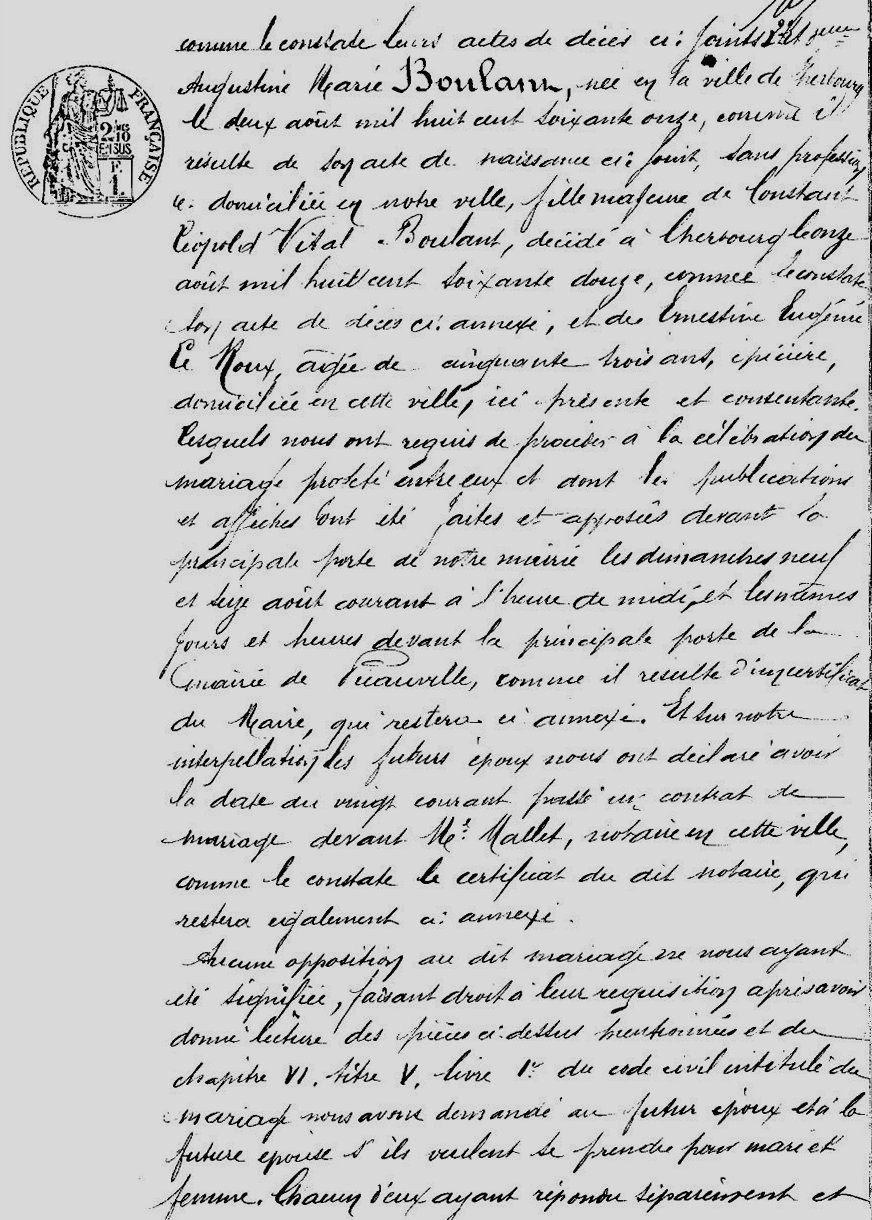 comme le constate leurs actes de décès ci: joints 2° Et
Augustine Marie Boulant, née en la ville de Cherbourg
le deux août mil huit cent soixante onze, comme il
résulte de son acte de naissance ci: joint, sans profession
domiciliée en notre ville, fille majeure de Constant
Léopold Vital Boulant, décédé à Cherbourg le onze
août mil huit cent soixante douze, comme le constate
son acte de décès ci: annexé, et de Ernestine Eugénie
Le Roux, agée de cinquante trois ans, épicière,
domiciliée en cette ville, ici présente et consentante.
Lesquels nous ont requis de procéder à la célébration du
mariage projeté entre eux et dont les publications
et affiches ont été faites et apposées devant la
principale porte de notre mairie les dimanches neuf
et seize août courant à l'heure de midi, et les mêmes
jours et heures devant la principale porte de la
mairie de Picauville, comme il résulte d'un certificat
du Maire, qui restera ci annexé. Et sur notre
interpellation les futurs époux nous ont déclaré avoir
la date du vingt courant passé un contrat de
mariage devant Me. Mallet, notaire en cette ville,
comme le constate le certificat du dit notaire, qui
restera également ci: annexé.
Aucune opposition au dit mariage ne nous ayant
été signifiée, faisant droit à leur requisition après avoir
donné lecture des pièces ci: dessus mentionnées et du
chapitre VI. titre V. livre 1er du code civil intitulé du
mariage nous avons demandé au futur époux et à la
future épouse s'ils veulent se prendre pour mari et
femme. Chacun d'eux ayant répondu séparément et
RÉPUBLIQUE FRANÇAISE
2/10
EN SUS
F.
1.